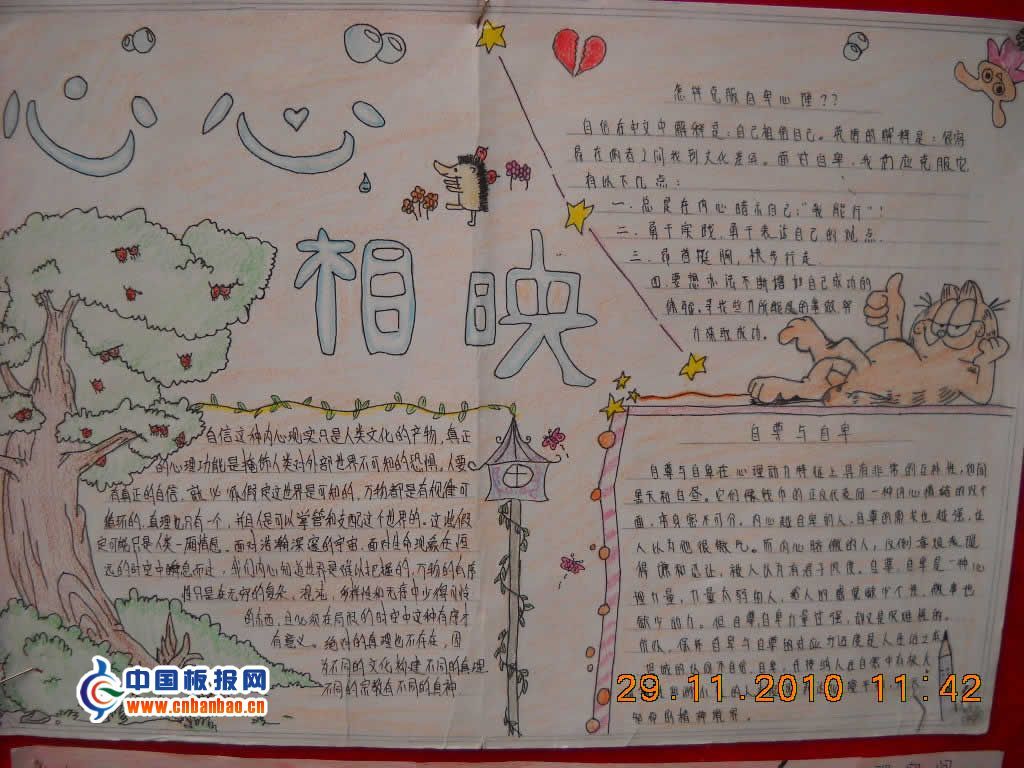 心心
相映
怎样克服自卑心理??
自信在中文中解释是:自己相信自己。英语的解释是:很容
易在两者之间找到文化差异。面对自卑,我们应克服它
有以下几点:
一.总是在内心暗示自己:"我能行"!
二.勇于实践,勇于表达自己的观点.
三.昂首挺胸,快步行走.
四.要想办法不断增加自己成功的
体验。寻找些力所能及的事做,努
力获取成功。
自信这种内心现实只是人类文化的产物,真正
的心理功能是掩饰人类对外部世界不可知的恐惧。人要
有真正的自信,就必须假定这世界是可知的,万物都是有规律可
循环的,真理也只有一个,并且是可以掌管和支配这个世界的。这些假
定可能只是人类一厢情愿。面对浩瀚深邃的宇宙,面对生命现象在恒
远的时空中瞬息而过,我们内心知道世界是难以把握的,万物的有序
性只是在无穷的复杂、混沌、多样性和无序中少得可怜
的东西,且必须在局限的时空中这种有序才
有意义。绝对的真理也不存在,因
为不同的文化构建不同的真理
不同的宗教有不同的真神
自尊与自卑
自尊与自卑在心理动力特征上具有非常的互补性,如同
黑天和白昼。它们像钱币的正反代表同一种内心情结的两个
面,亲身密不可分。内心越自卑的人,自尊的需求也越强,让
人认为他很傲气。而内心骄傲的人,反倒喜欢表现
得谦和忍让,被人认为有君子风度。自尊,自卑是一种心
理力量,力量太弱的人,给人的感觉缺少个性,做事也
缺少动力。但自尊自卑力量过强,却又是很难熬的。
中国板报网
www.cnbanbao.cn
29.11.2010 11:42